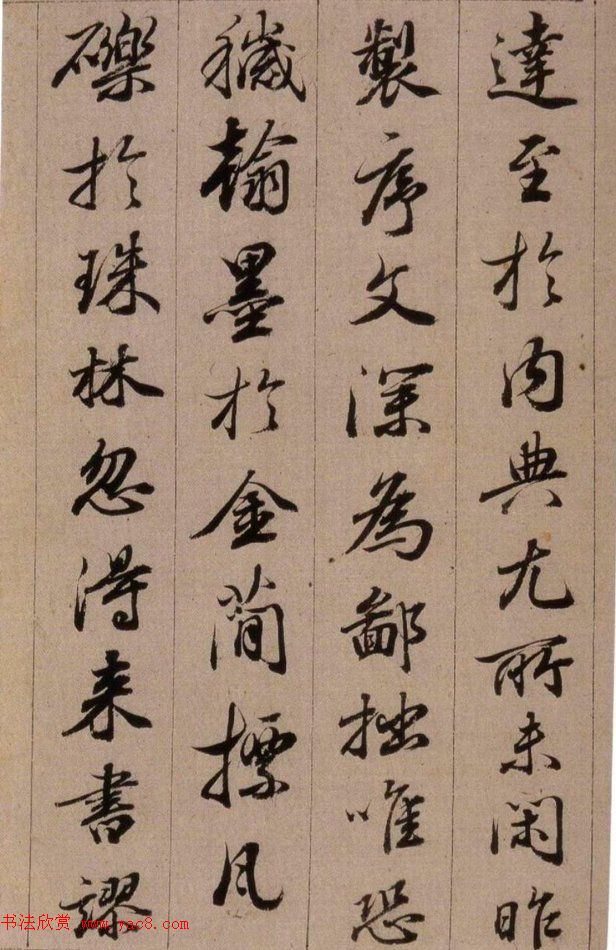 達至於内典尤所未閑昨
製序文深為鄙拙唯恐
穢翰墨於金簡摽瓦
礫於珠林忽得来書謬
书法欣赏 www.yac8.com